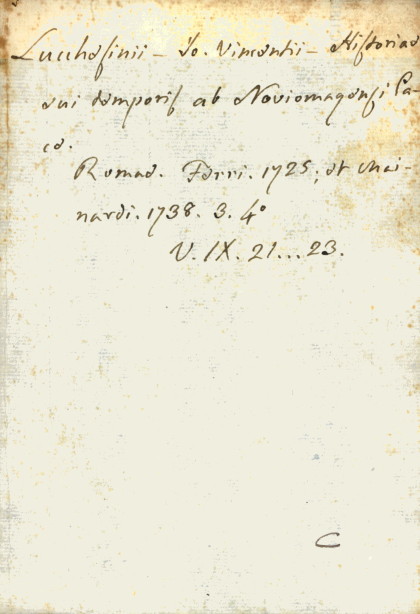 Lucchesinii - Jo. Vincentii - Historiae
sui temporis ab Noviomagensi Pa-
ce.
Romae. Ferri. 1725; et Mai-
nardi. 1738. 3. 4°
V. IX. 21...23.
C